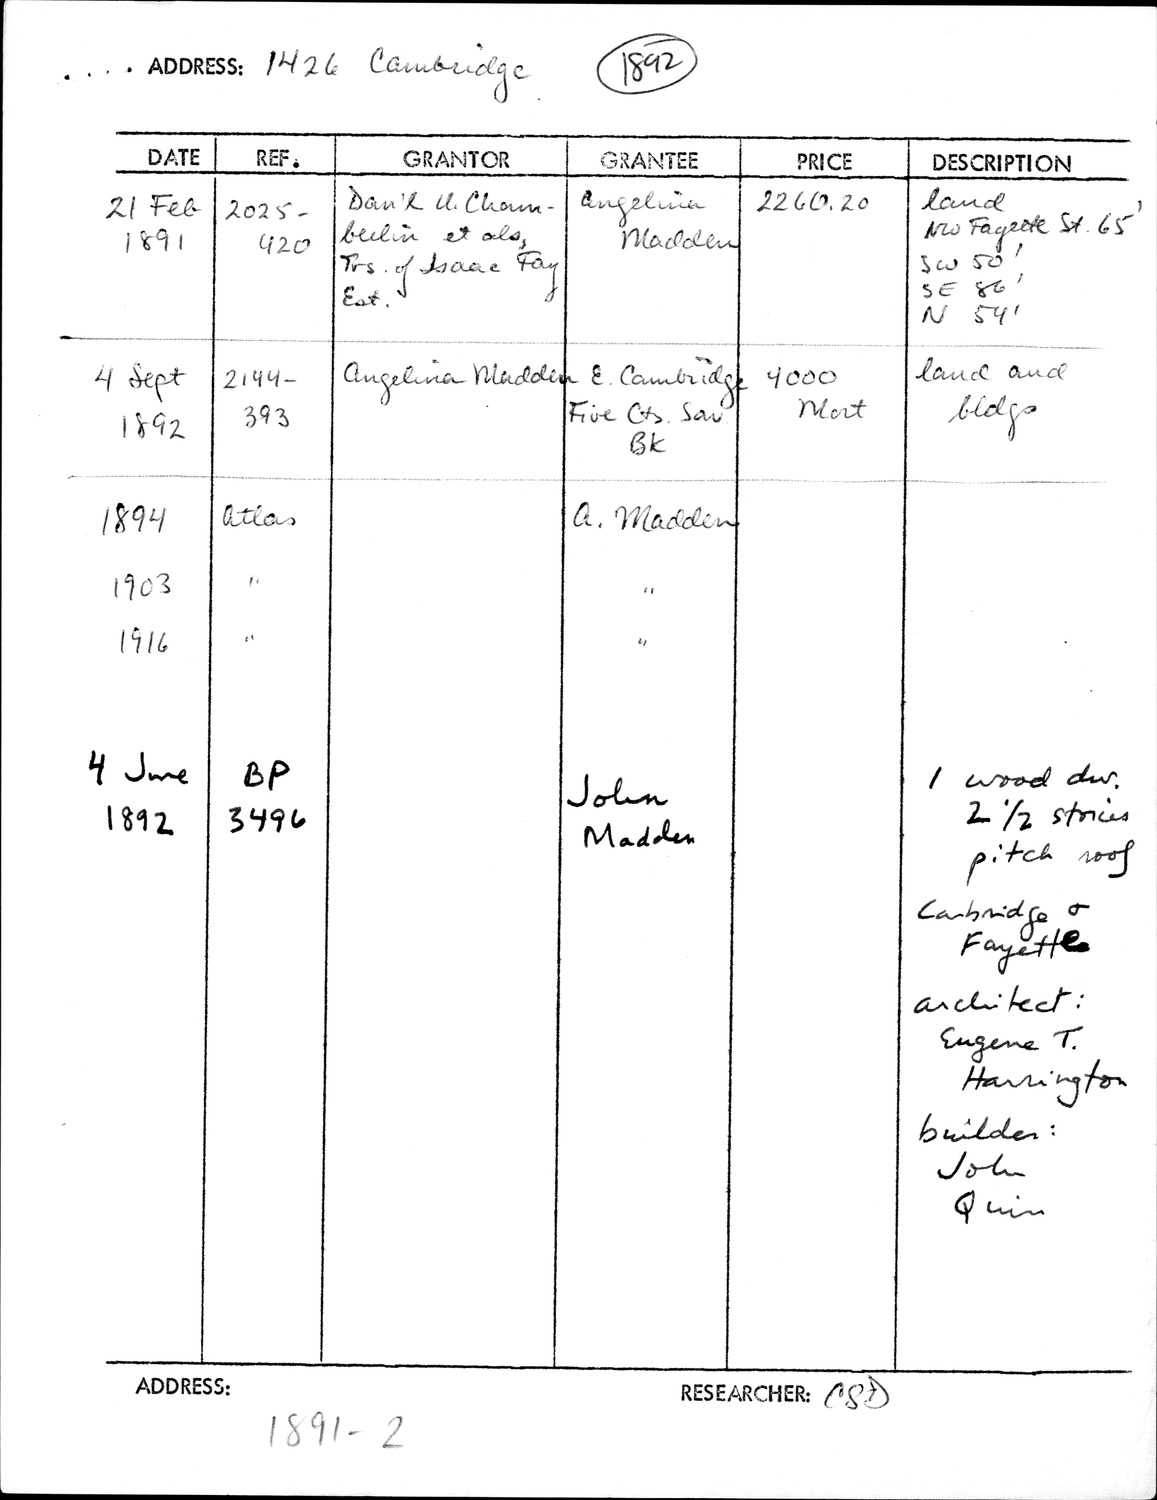 ADDRESS: 1426 Cambridge 1892
DATE REF. GRANTOR GRANTEE PRICE DESCRIPTION
21 Feb 1891 2025-420 Dan'l U. Cham-berlin et als, Trs. of Isaac Fay Est. Angelina Madden 2260.20 land
NW Fayette St. 65'
SW 50'
SE 86'
N 54'
4 Sept 1892 2144-393 Angelina Madden E. Cambridge Five Cts. Sav Bk 4000 Mort land and bldgs
1894 Atlas A. Madden
1903 " "
1916 " "
4 June 1892 BP 3496 John Madden 1 wood dw.
2 1/2 stories
pitch roof
Cambridge &
Fayette
architect:
Eugene T.
Harrington
builder:
John
Quin
ADDRESS: RESEARCHER:
1891-2